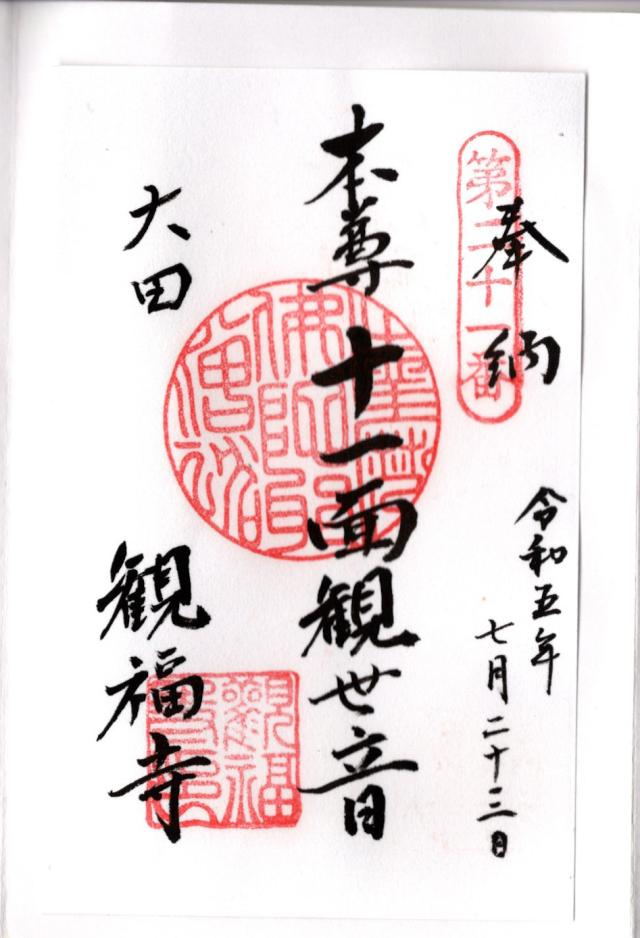 第二十一番
奉納
令和五年
七月二十三日
本尊十一面観世音
大田
観福寺